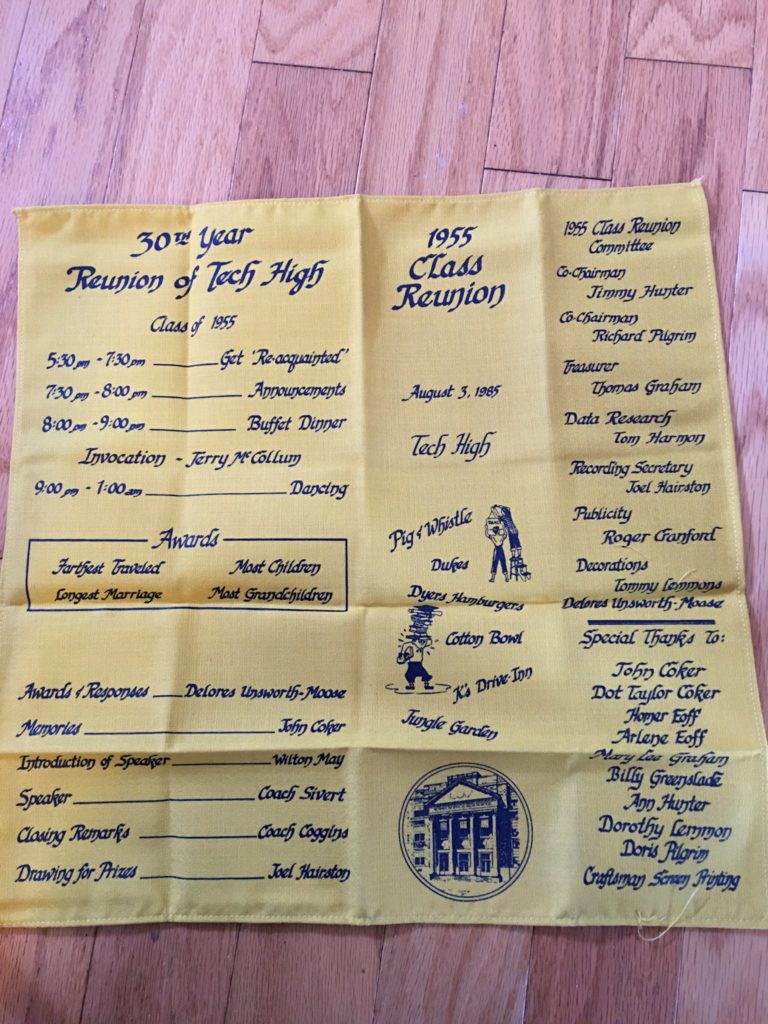 30TH Year
Reunion of Tech High
Class of 1955
5:30 pm - 7:30 pm Get 'Re-acquainted'
7:30 pm - 8:00 pm Announcements
8:00 pm - 9:00 pm Buffet Dinner
Invocation - Jerry McCollum
9:00 pm - 1:00 am Dancing
Awards
Farthest Traveled Most Children
Longest Marriage Most Grandchildren
Awards & Responses Delores Unsworth-Moose
Memories John Coker
Introduction of Speaker Wilton May
Speaker Coach Sivert
Closing Remarks Coach Coggins
Drawing for Prizes Joel Hairston
1955
Class
Reunion
August 3, 1985
Tech High
Pig & Whistle
Dukes
Dyers Hamburgers
Cotton Bowl
K's Drive-Inn
Jungle Garden
1955 Class Reunion
Committee
Co-Chairman
Jimmy Hunter
Co-Chairman
Richard Pilgrim
Treasurer
Thomas Graham
Data Research
Tom Harmon
Recording Secretary
Joel Hairston
Publicity
Roger Cranford
Decorations
Tommy Lemmons
Delores Unsworth-Moose
Special Thanks To:
John Coker
Dot Taylor Coker
Homer Eoff
Arlene Eoff
Mary Lee Graham
Billy Greenslade
Ann Hunter
Dorothy Lemmon
Doris Pilgrim
Craftsman Screen Printing